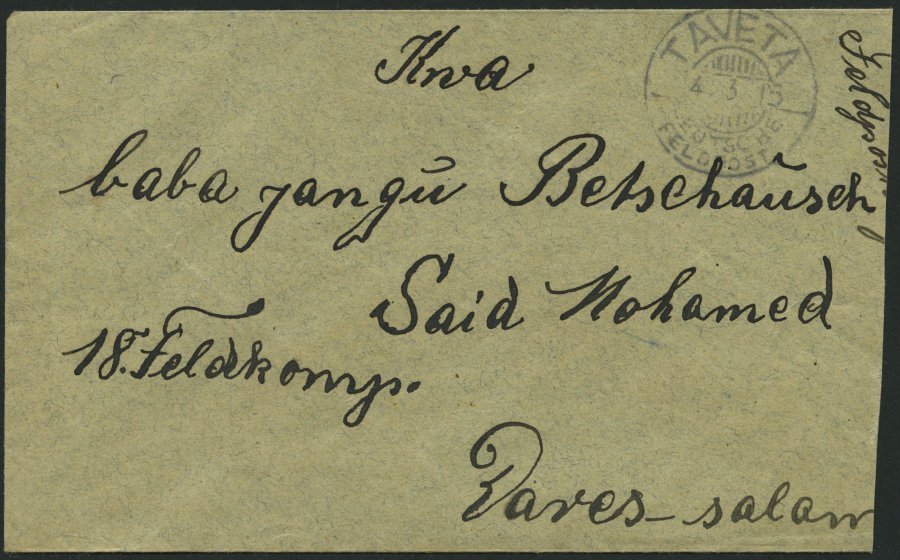 Kwa
baba yangu Betschausch
Said Mohamed
18. Feldkomp.
Dares-salam
Feldpost
TAVETA
4 3 15
DEUTSCHE
FELDPOST